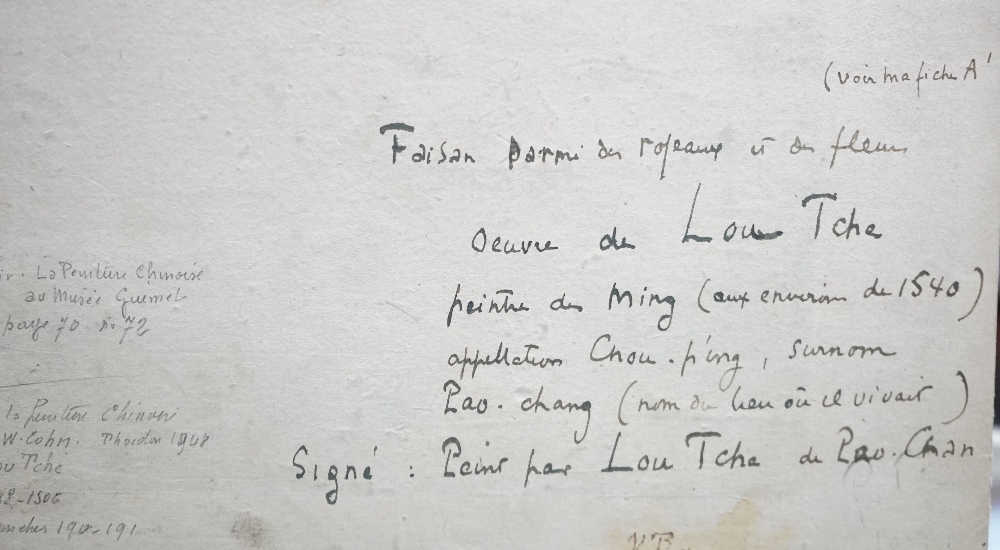 (voir ma fiche A'
Faisan parmi des roseaux et des fleurs
Oeuvre de Lou Tche
peintre des Ming (aux environs de 1540)
appellation Chou-p'ing, surnom
Pao-chang (nom du lieu où il vivait)
Signé : Peint par Lou Tche de Pao-Chan
La Peinture Chinoise
au Musée Guimet
page 70 n° 72
la peinture Chinoise
W. Cohn. Phaidon 1948
ou Tché
-1506
anches 190-191